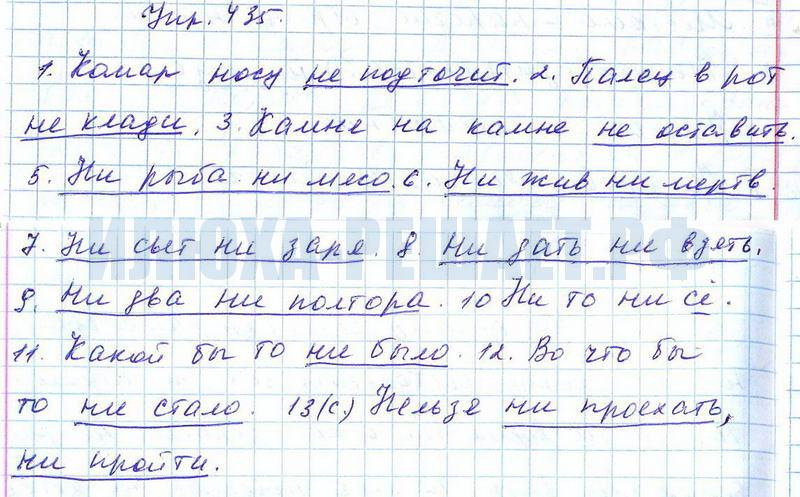 Упр. 435.
1. Комар носу не подточит. 2. Палец в рот
не клади. 3. Камне на камне не оставить.
5. Ни рыба ни мясо. 6. Ни жив ни мертв.
7. Ни сыт ни заря. 8. Ни дать ни взять.
ИЛЮХА-РЕШАЕТ.РФ
9. Ни два ни полтора. 10 Ни то ни сё.
11. Какой бы то ни было. 12. Во что бы
то ни стало. 13(с.) Нельзя ни проехать,
ни пройти.